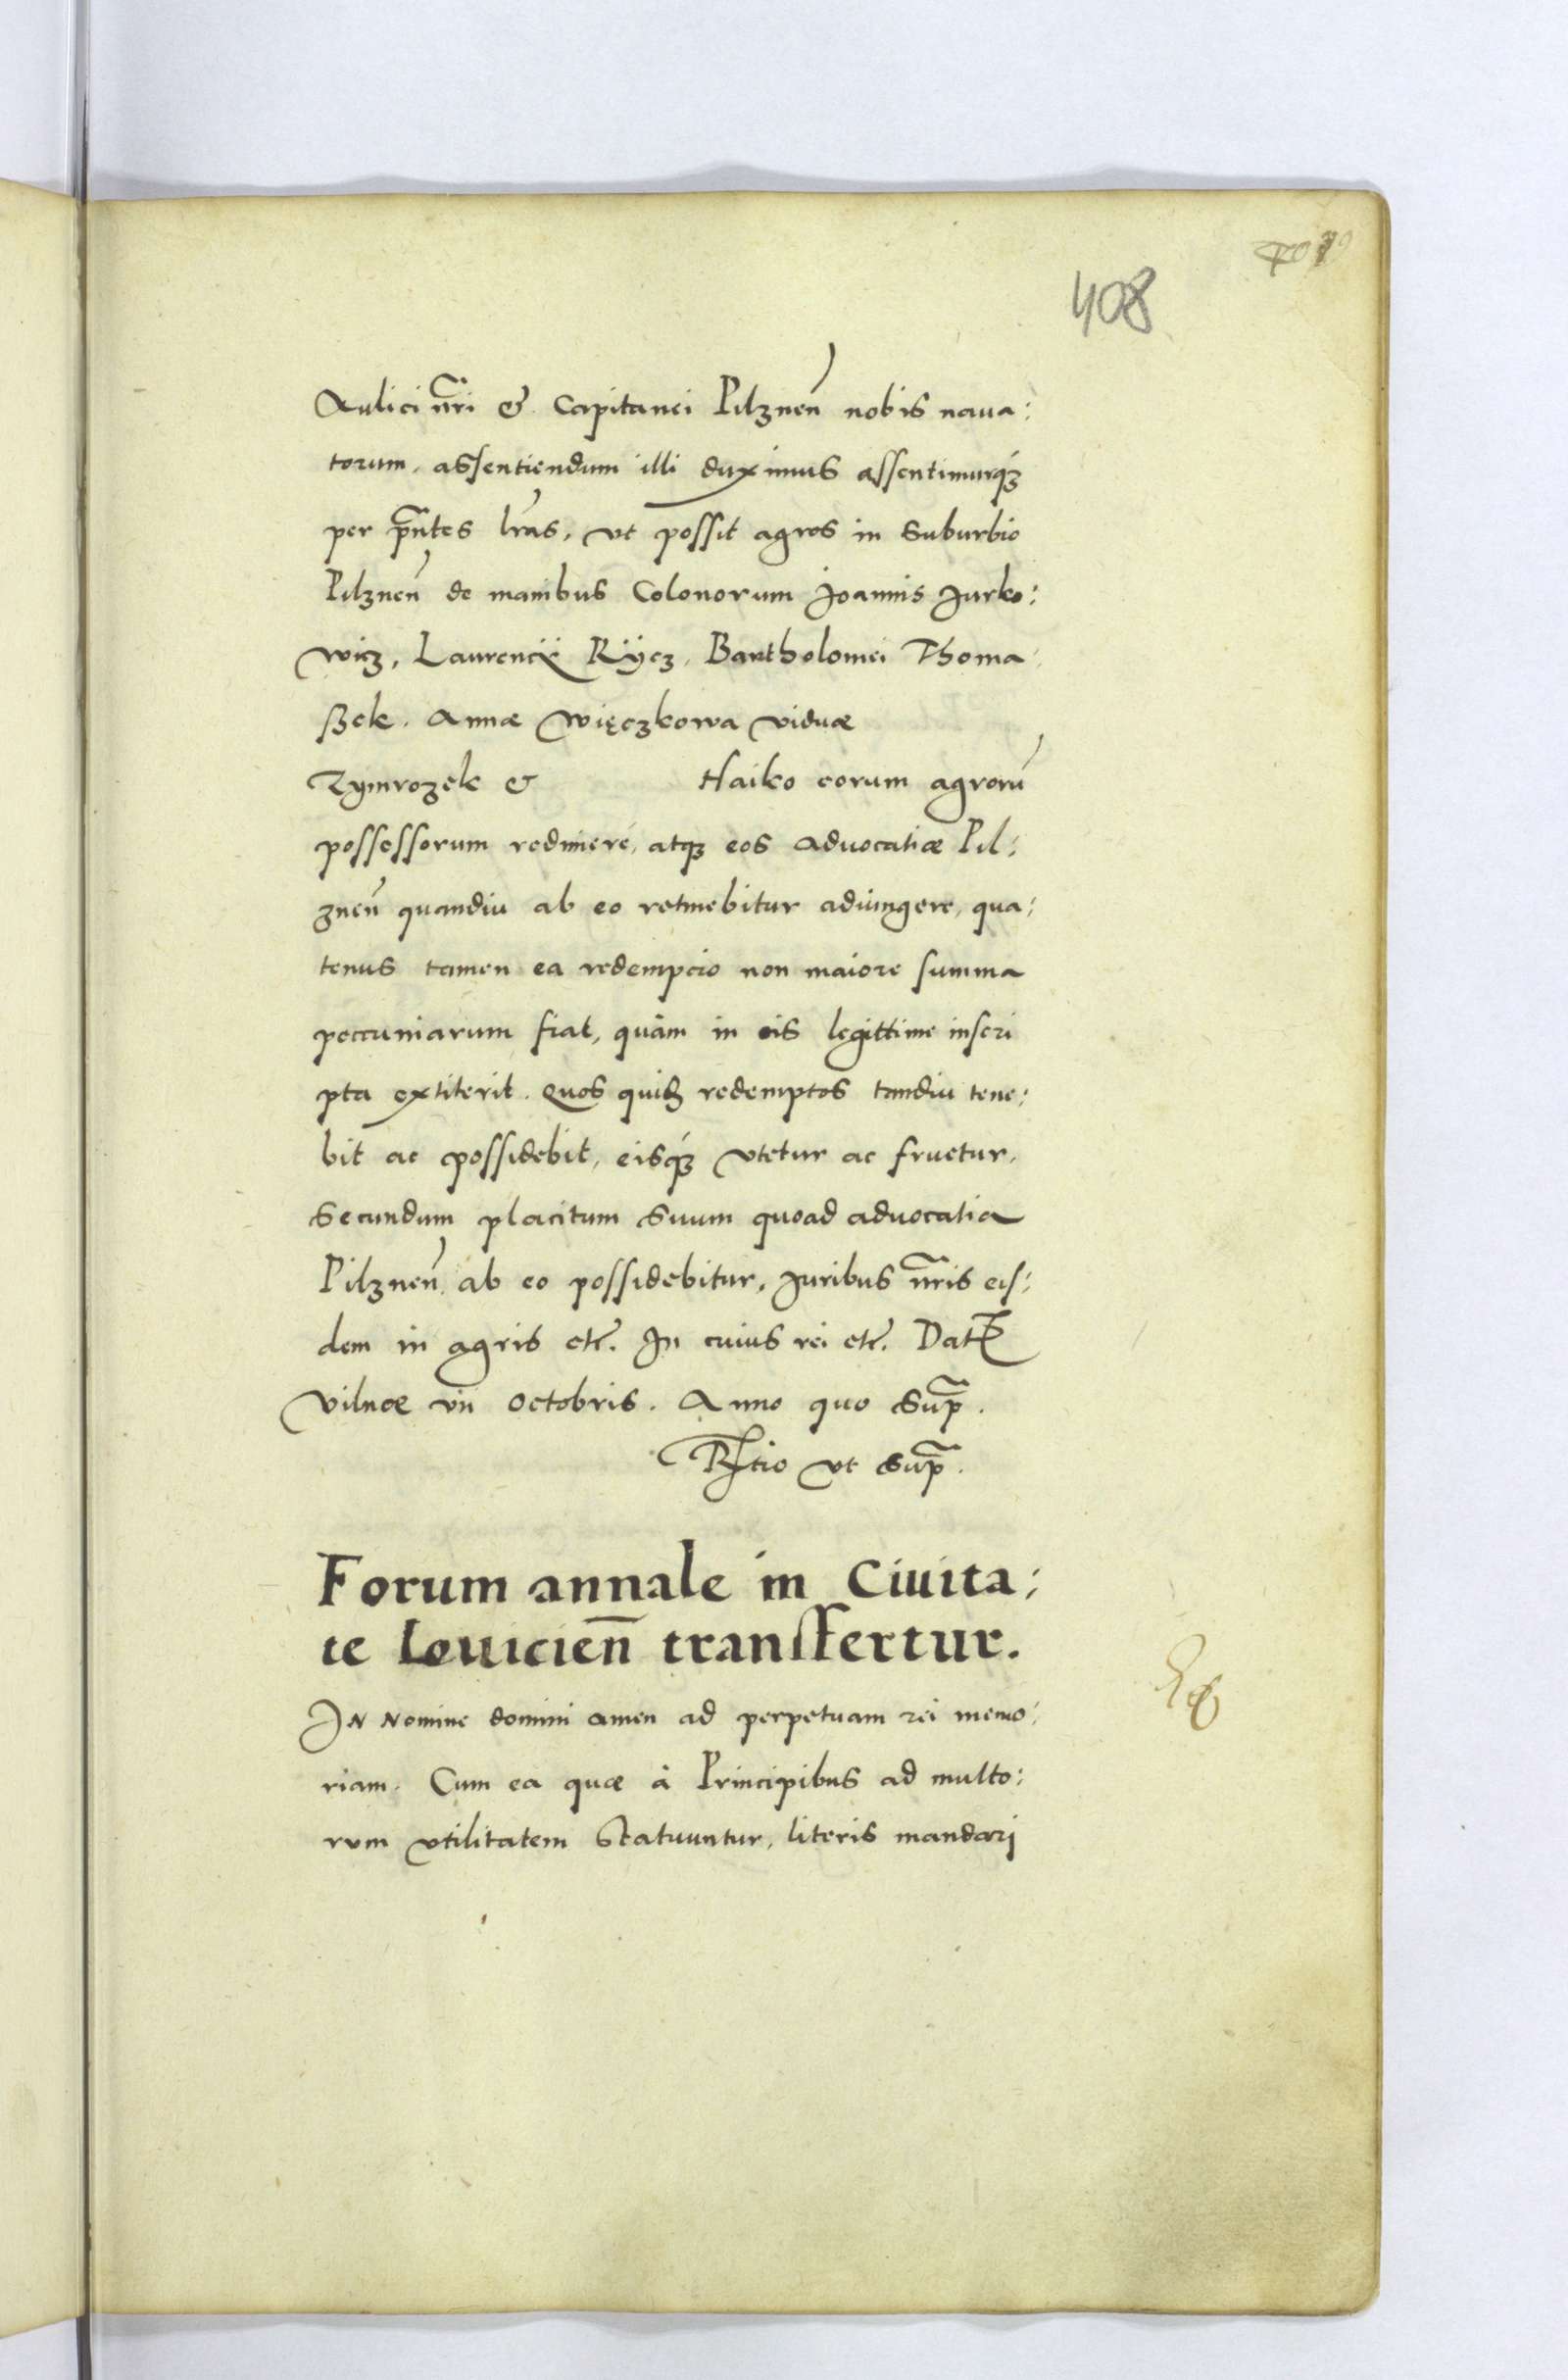 408
Aulici nr̃i & Capitanei Pilznen̄ nobis naua:
torum, assentiendum illi duximus assentimurq́ꝫ
per p̃ntes lr̃as, vt possit agros in Suburbio
Pilznen̄ de manibus Colonorum Joannis Jurko:
wicz, Laurencÿ Rÿcz, Bartholomei Thoma
szek. Annæ Więczkowa viduæ
Zymrozek & Haiko eorum agrorū
possessorum redimere, atqꝫ eos aduocatiæ Pil:
znen̄ quandiu ab eo retinebitur adiungere, qua:
tenus tamen ea redempcio non maiore summa
peccuniarum fiat, quàm in eis legittime inscri
pta extiterit. Quos quidẽ redemptos tandiu tene:
bit ac possidebit, eisq́ꝫ vtetur ac fruetur,
secundum placitum suum quoad aduocatia
Pilznen̄ ab eo possidebitur, Juribus nr̃is eis:
dem in agris etc̃. In cuius rei etc̃. Dat̃
Vilnæ vii Octobris. Anno quo sup̃.
R̃tio vt sup̃.
Forum annale in Ciuita:
te Louicien̄ transfertur.
IN Nomine domini amen ad perpetuam rei memo:
riam. Cum ea quæ à Principibus ad multo:
rum vtilitatem statuuntur, literis mandari